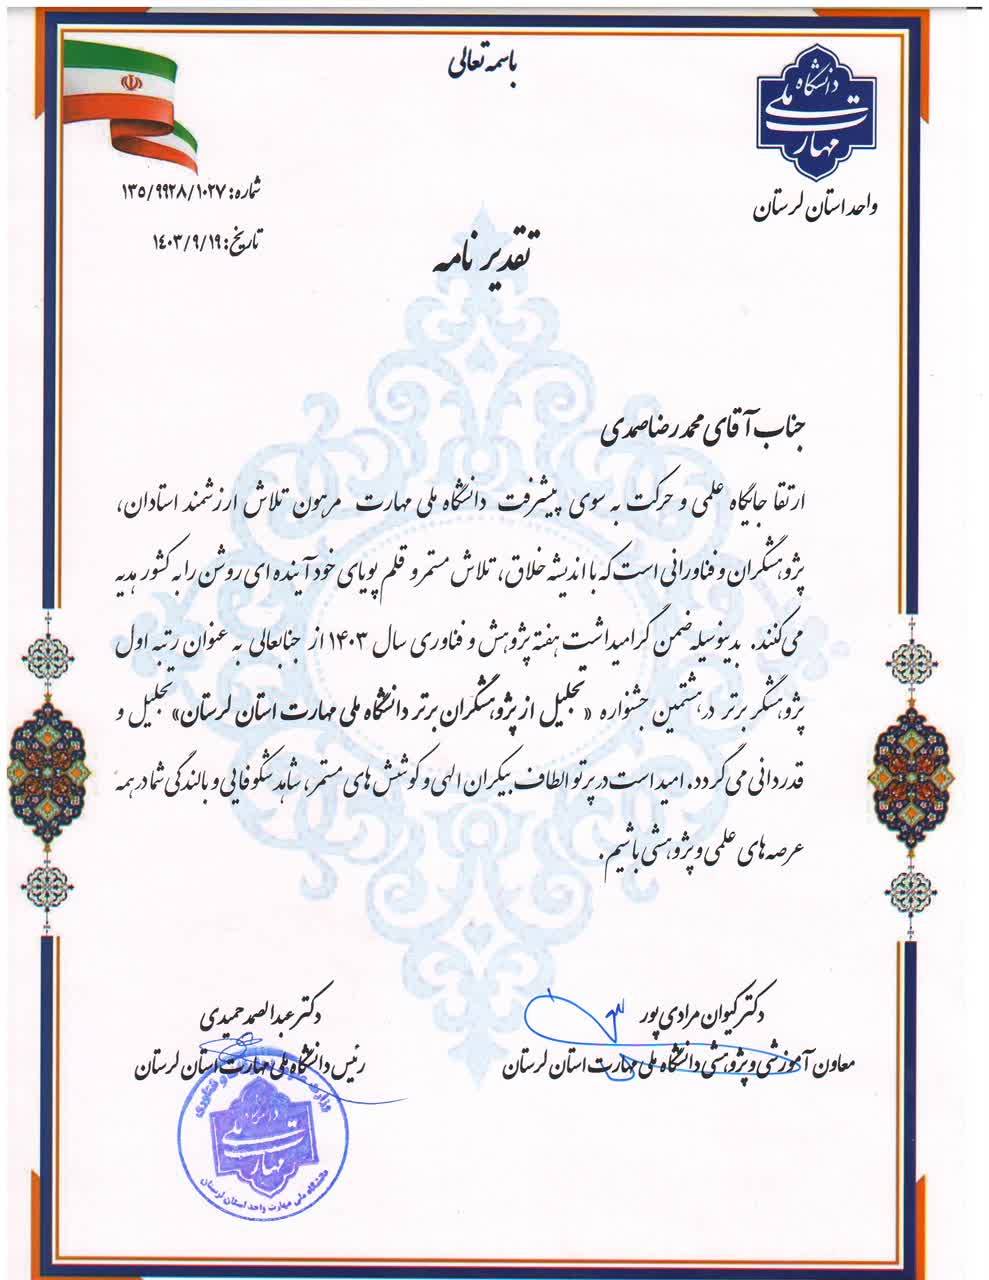 باسمه تعالی
دانشگاه
ملی
مهارت
واحد استان لرستان
شماره: ۱۳۵/۹۹۲۸/۱۰۲۷
تاریخ: ۱۴۰۳/۹/۱۹
تقدیر نامه
جناب آقای محمدرضا صمدی
ارتقا جایگاه علمی و حرکت به سوی پیشرفت دانشگاه ملی مهارت مرهون تلاش ارزشمند استادان،
پژوهشگران و فناورانی است که با اندیشه خلاق، تلاش مستمر و قلم پویای خود آینده ای روشن را به کشور هدیه
می‌کنند. بدینوسیله ضمن گرامیداشت هفته پژوهش و فناوری سال ۱۴۰۳ از جنابعالی به عنوان رتبه اول
پژوهشگر برتر در هشتمین جشنواره «تجلیل از پژوهشگران برتر دانشگاه ملی مهارت استان لرستان» تجلیل و
قدردانی می گردد. امید است در پرتو الطاف بیکران الهی و کوشش های مستمر، شاهد شکوفایی و بالندگی شما در همه
عرصه های علمی و پژوهشی باشیم.
دکتر کیوان مرادی پور
معاون آموزشی و پژوهشی دانشگاه ملی مهارت استان لرستان
دکتر عبدالصمد حمیدی
رئیس دانشگاه ملی مهارت استان لرستان
ملی
مهارت
دانشگاه ملی مهارت واحد استان لرستان